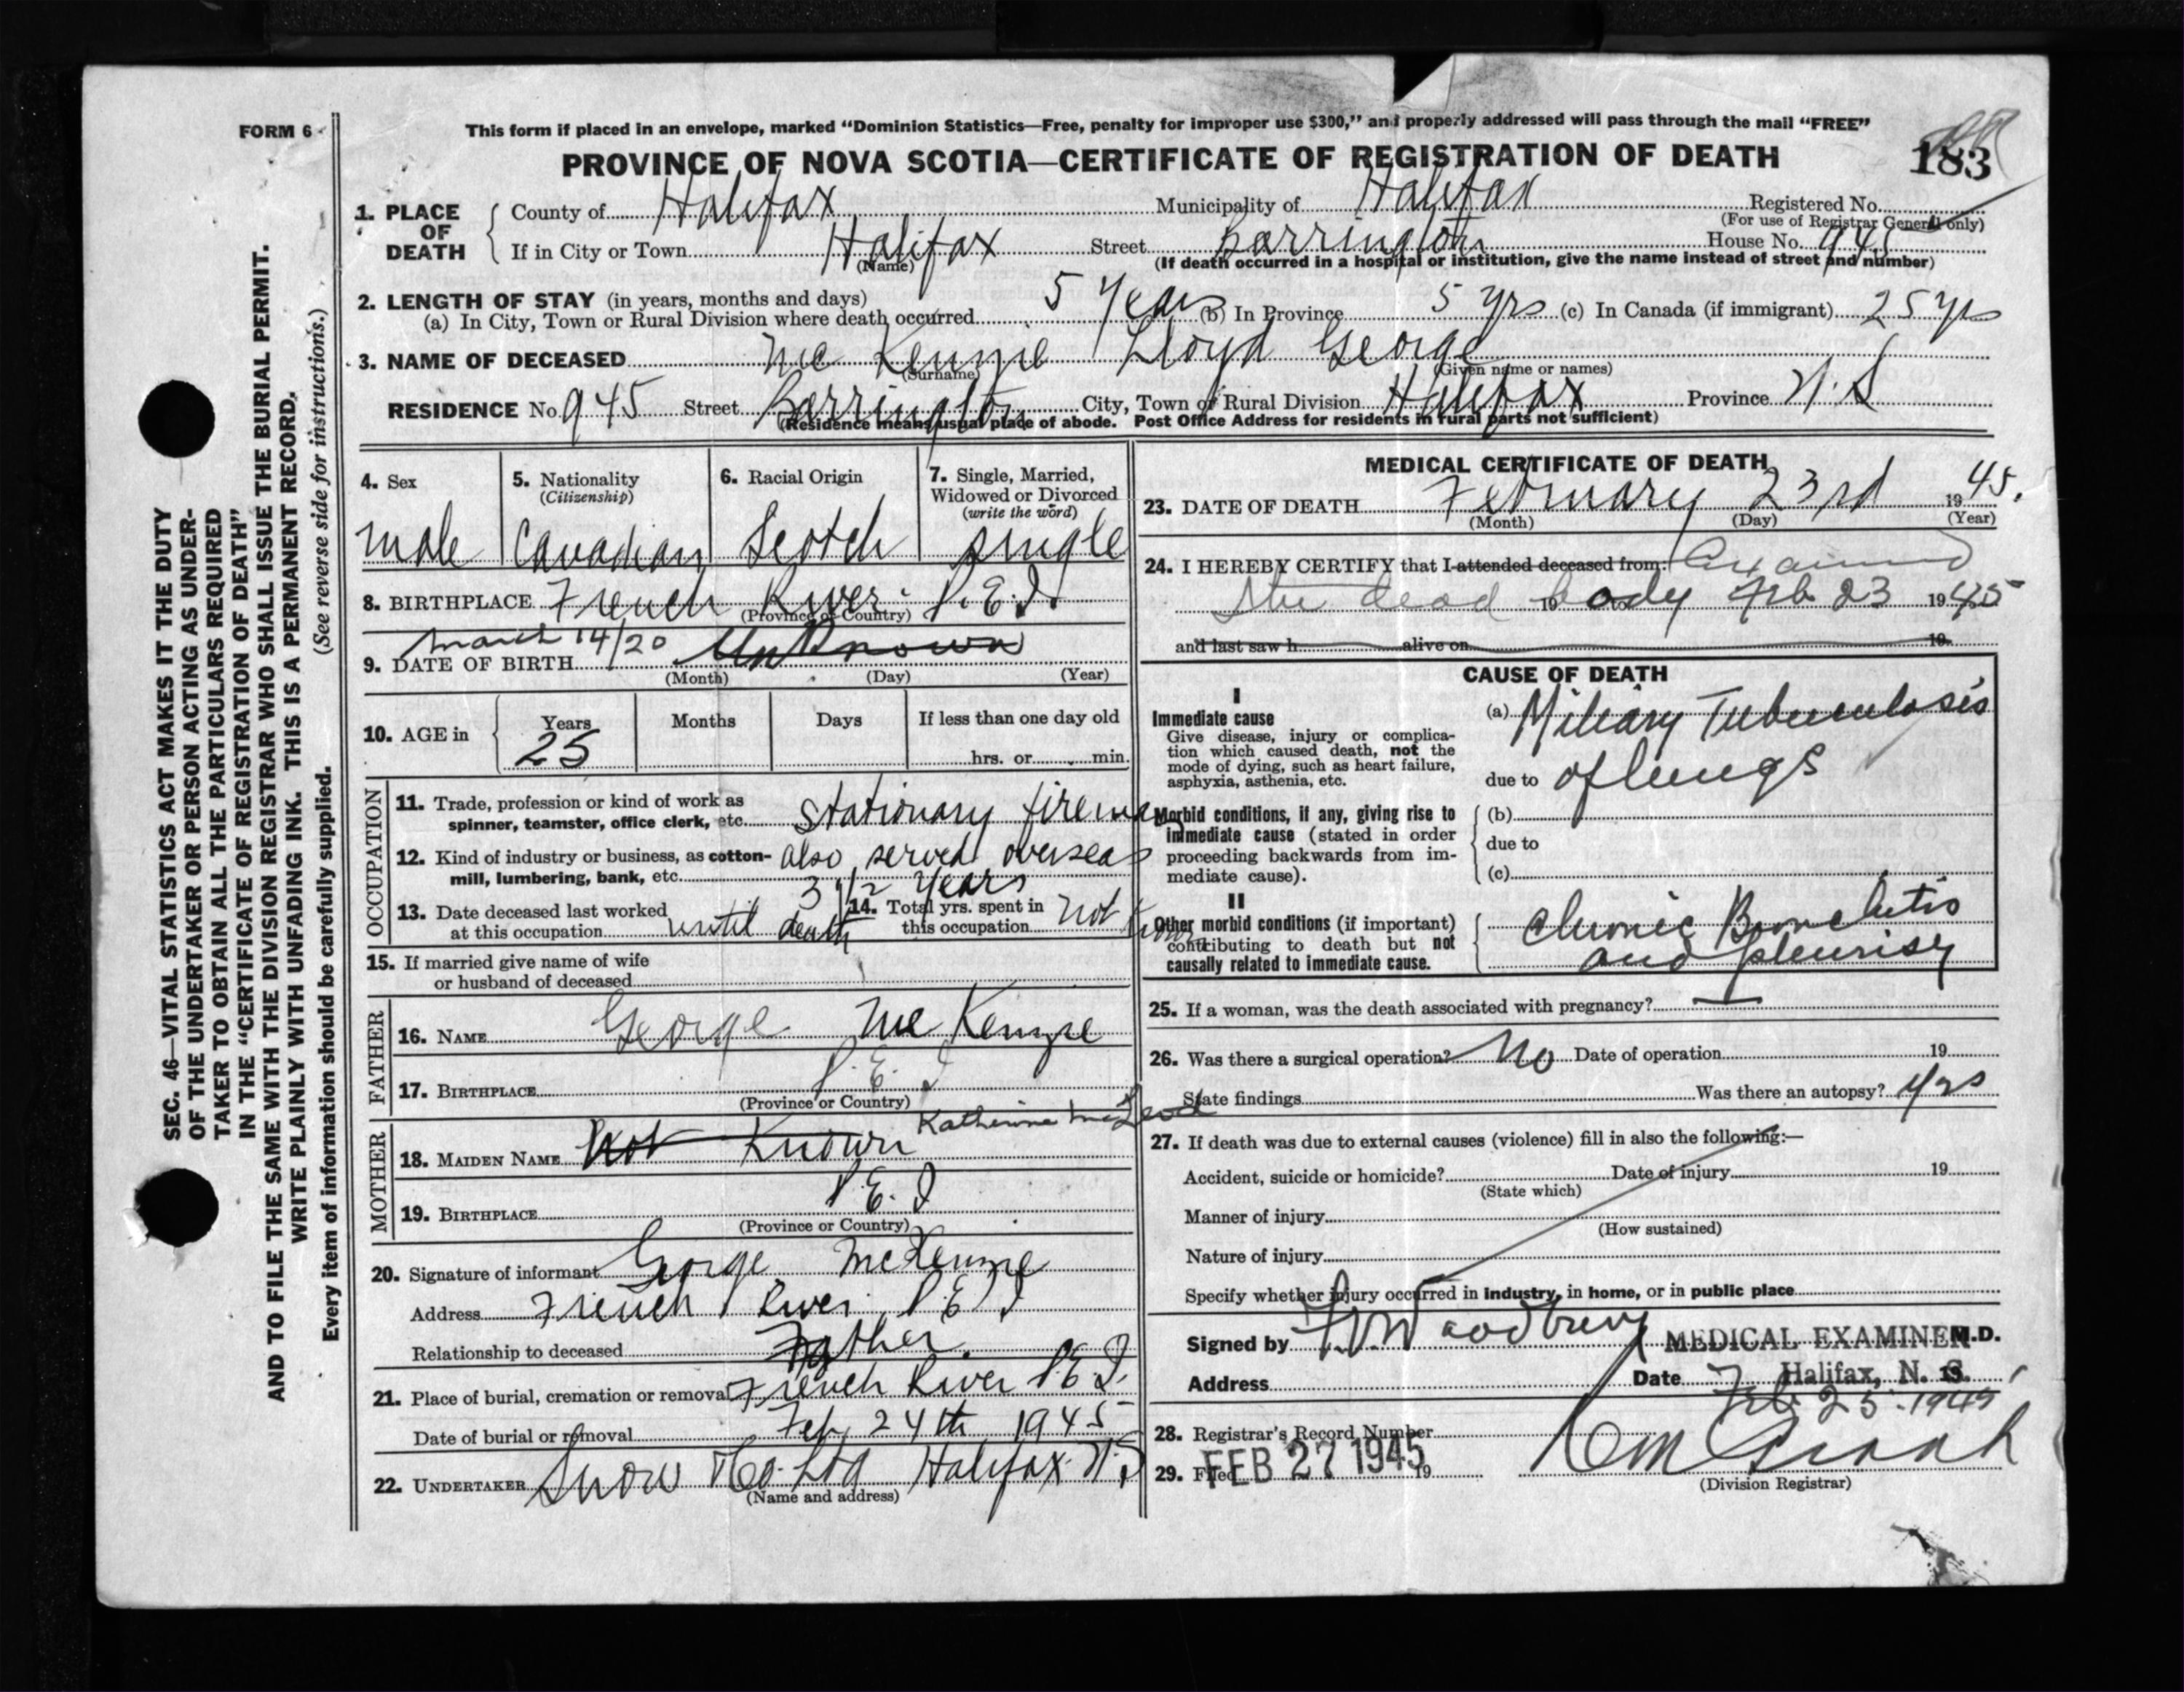 FORM 6
This form if placed in an envelope, marked “Dominion Statistics—Free, penalty for improper use $300,” and properly addressed will pass through the mail “FREE”
PROVINCE OF NOVA SCOTIA—CERTIFICATE OF REGISTRATION OF DEATH
183
1. PLACE OF DEATH
County of Halifax Municipality of Halifax Registered No.
(For use of Registrar General only)
If in City or Town Halifax Street Barrington House No. 945
(Name) (If death occurred in a hospital or institution, give the name instead of street and number)
2. LENGTH OF STAY (in years, months and days)
(a) In City, Town or Rural Division where death occurred 5 Years (b) In Province 5 yrs (c) In Canada (if immigrant) 25 yrs
3. NAME OF DECEASED Mc Kenzie Lloyd George
(Surname) (Given name or names)
RESIDENCE No. 945 Street Barrington City, Town or Rural Division Halifax Province N.S
(Residence means usual place of abode. Post Office Address for residents in rural parts not sufficient)
4. Sex
male
5. Nationality
(Citizenship)
Canadian
6. Racial Origin
Scotch
7. Single, Married,
Widowed or Divorced
(write the word)
single
8. BIRTHPLACE French River P.E.I.
(Province or Country)
March 14/20 Unknown
9. DATE OF BIRTH
(Month) (Day) (Year)
10. AGE in Years Months Days If less than one day old
25 hrs. or min.
OCCUPATION
11. Trade, profession or kind of work as
spinner, teamster, office clerk, etc. Stationary fireman
12. Kind of industry or business, as cotton-
mill, lumbering, bank, etc. also served overseas
3 1/2 Years
13. Date deceased last worked
at this occupation until death
14. Total yrs. spent in
this occupation Not Known
15. If married give name of wife
or husband of deceased
FATHER
16. NAME George Mc Kenzie
17. BIRTHPLACE P.E.I
(Province or Country)
MOTHER
Katherine MacLeod
18. MAIDEN NAME Not Known
19. BIRTHPLACE P.E.I
(Province or Country)
20. Signature of informant George McKenzie
Address French River, P.E.I
Relationship to deceased Father.
21. Place of burial, cremation or removal French River P.E.I.
Date of burial or removal Feb 24th 1945
22. UNDERTAKER Snow & Co. Ltd Halifax N.S
(Name and address)
MEDICAL CERTIFICATE OF DEATH
23. DATE OF DEATH February 23rd 1945.
(Month) (Day) (Year)
24. I HEREBY CERTIFY that I attended deceased from: Examined
the dead 19 to body Feb 23 1945
and last saw h alive on 19
CAUSE OF DEATH
I
Immediate cause
Give disease, injury or complica-
tion which caused death, not the
mode of dying, such as heart failure,
asphyxia, asthenia, etc.
(a) Miliary Tuberculosis
due to of lungs
Morbid conditions, if any, giving rise to
immediate cause (stated in order
proceeding backwards from im-
mediate cause).
(b)
due to
(c)
II
Other morbid conditions (if important)
contributing to death but not
causally related to immediate cause.
Chronic Bronchitis
and pleurisy
25. If a woman, was the death associated with pregnancy? —
26. Was there a surgical operation? No Date of operation 19
State findings Was there an autopsy? Yes
27. If death was due to external causes (violence) fill in also the following:—
Accident, suicide or homicide? Date of injury 19
(State which)
Manner of injury
(How sustained)
Nature of injury
Specify whether injury occurred in industry, in home, or in public place
Signed by Woodbury MEDICAL EXAMINER M.D.
Address Date Halifax, N. S. 19
Feb 25. 1945
28. Registrar's Record Number
29. Filed FEB 27 1945 19
(Division Registrar)
SEC. 46—VITAL STATISTICS ACT MAKES IT THE DUTY
OF THE UNDERTAKER OR PERSON ACTING AS UNDER-
TAKER TO OBTAIN ALL THE PARTICULARS REQUIRED
IN THE “CERTIFICATE OF REGISTRATION OF DEATH”
AND TO FILE THE SAME WITH THE DIVISION REGISTRAR WHO SHALL ISSUE THE BURIAL PERMIT.
WRITE PLAINLY WITH UNFADING INK. THIS IS A PERMANENT RECORD.
Every item of information should be carefully supplied. (See reverse side for instructions.)